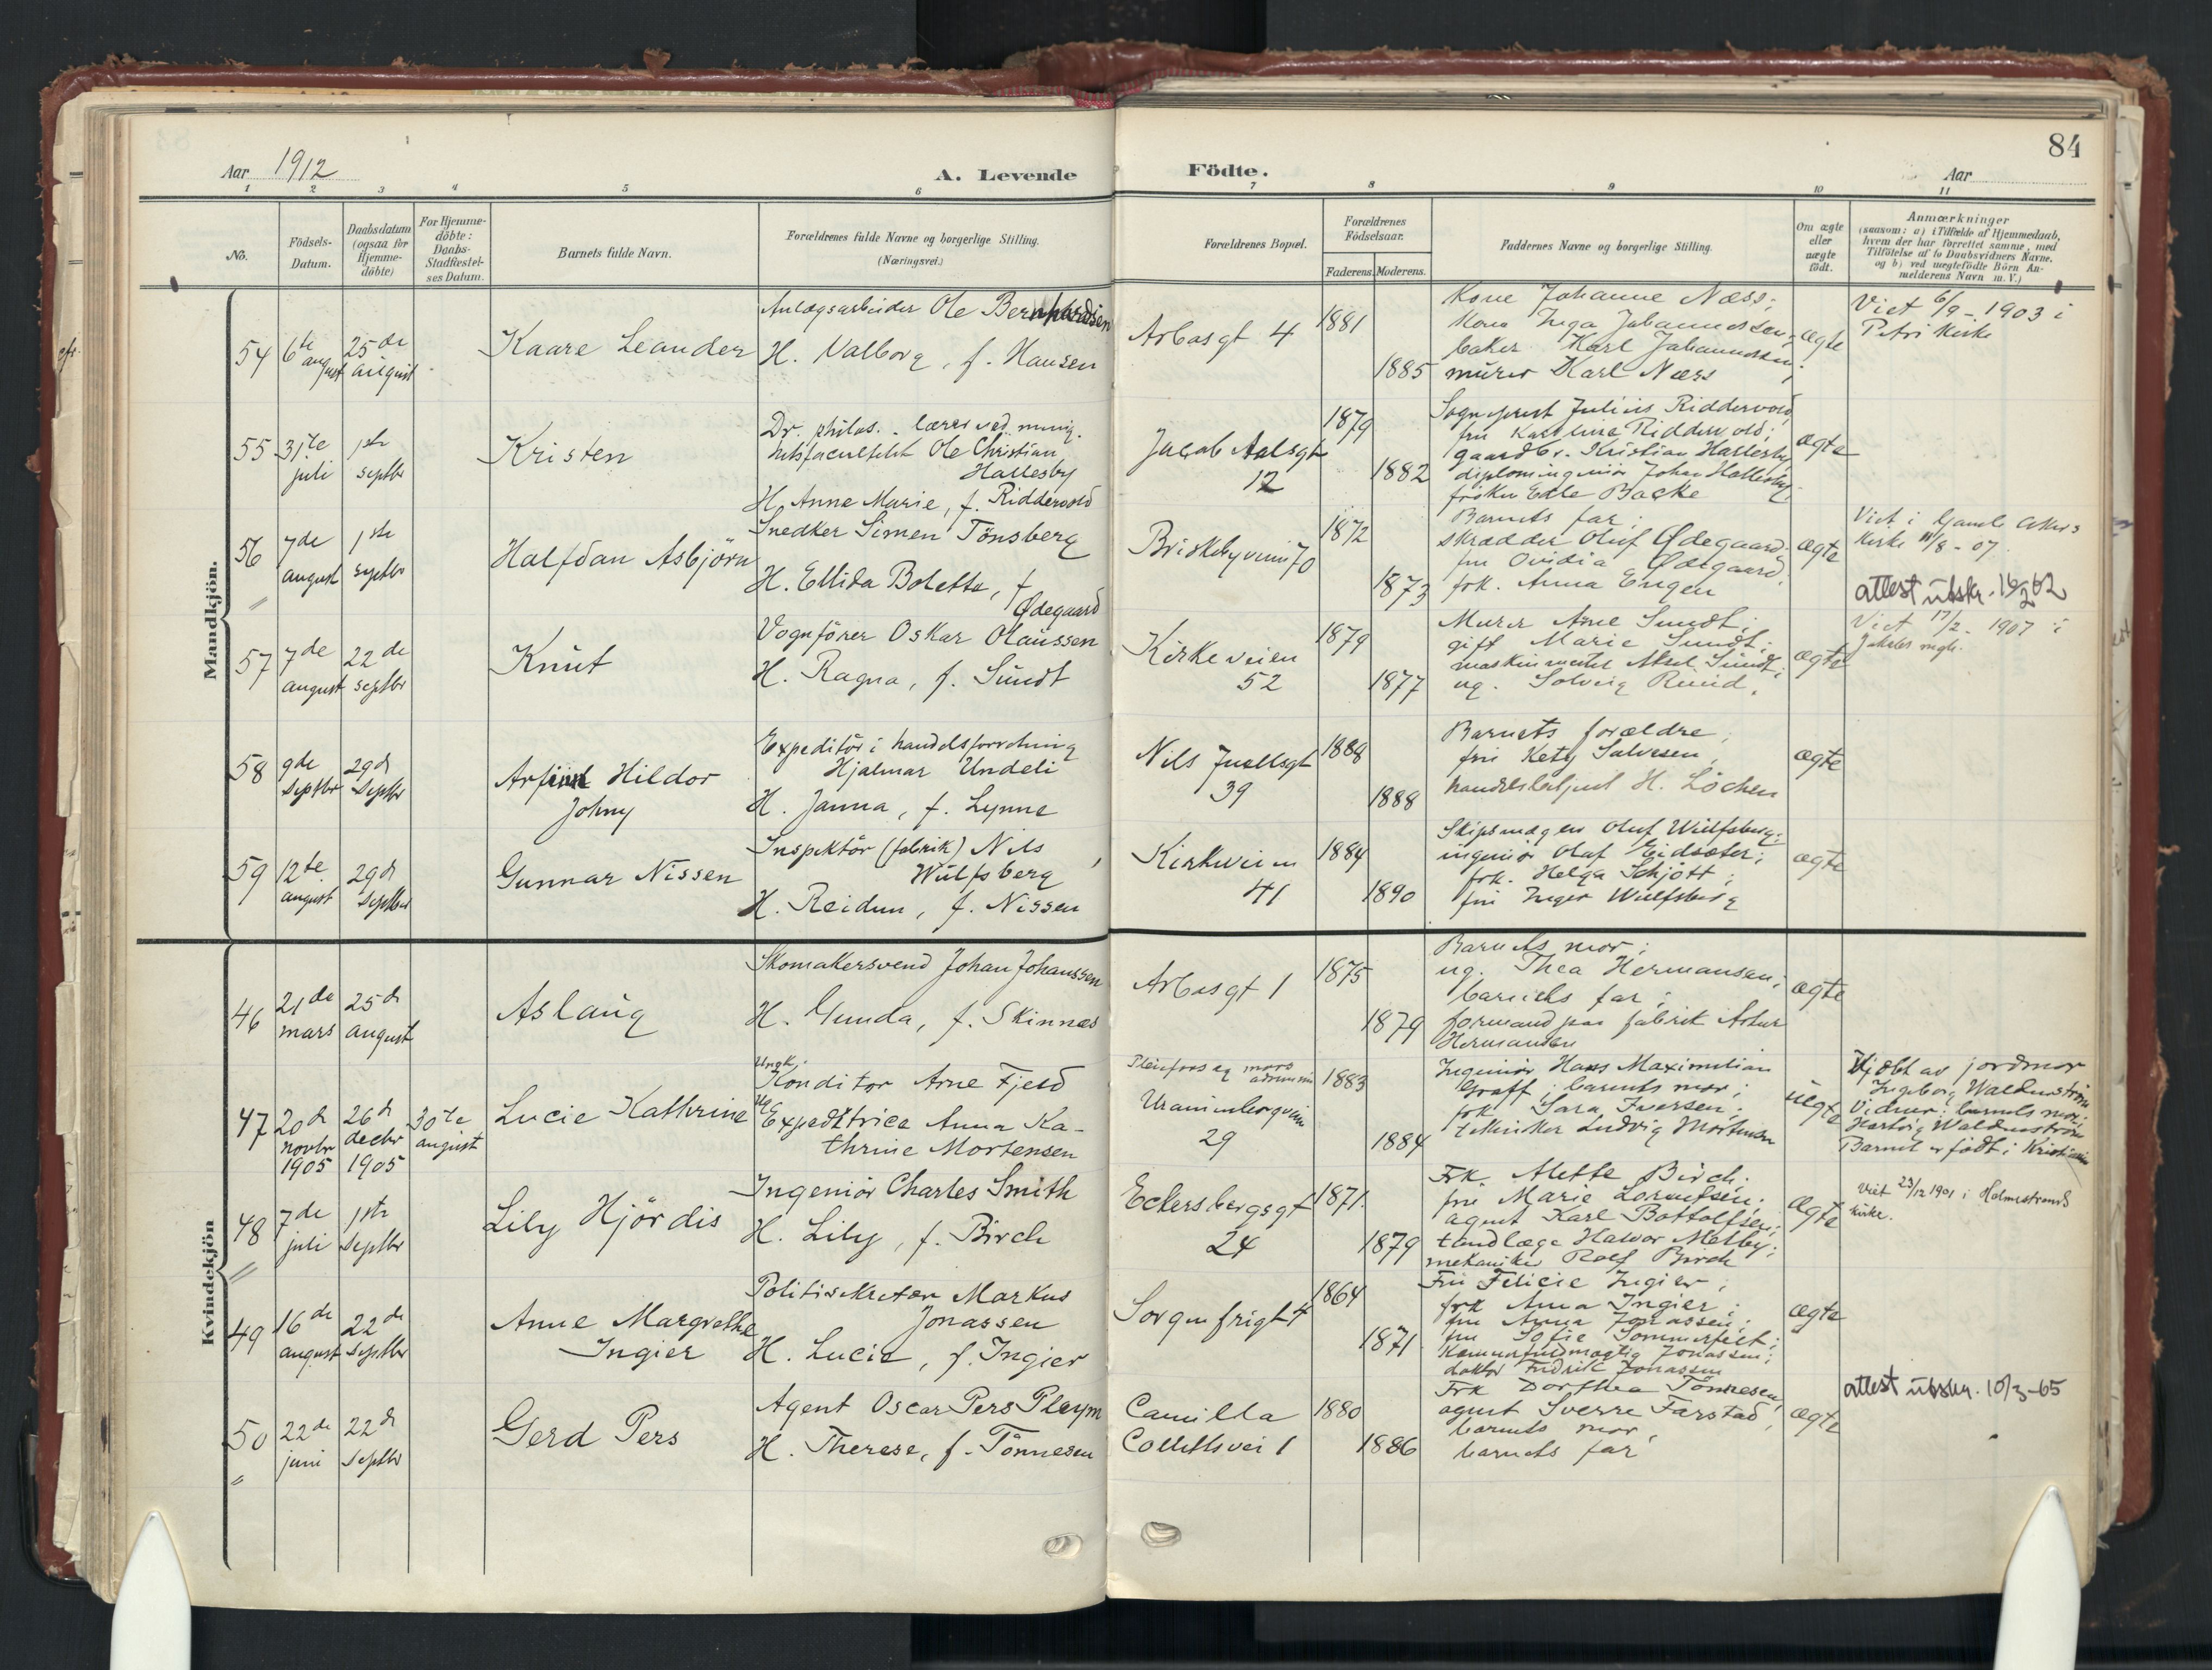 84
Aar 1912
A. Levende Födte.
Aar
1 2 3 4 5 6 7 8 9 10 11
No.
Födsels-
Datum.
Daabsdatum
(ogsaa for
Hjemme-
döbte)
For Hjemme-
döbte:
Daabs-
Stadfæstel-
ses Datum.
Barnets fulde Navn.
Forældrenes fulde Navne og borgerlige Stilling.
(Næringsvei.)
Forældrenes Bopæl.
Forældrenes
Födselsaar.
Faderens. Moderens.
Faddernes Navne og borgerlige Stilling.
Om ægte
eller
uægte
født.
Anmærkninger
(saasom: a) i Tilfælde af Hjemmedaab,
hvem der har forrettet samme, med
Tilföielse af to Daabsvidners Navne,
og b) ved uægtefödte Börn An-
melderens Navn m. V.)
Mandkjön.
54
6te
august
25de
august
Kaare Leander
Anlægsarbeider Ole Bernhardsen
H. Valborg, f. Hansen
Arbosgt 4
1881
1885
Kone Johanne Næss;
Kone Inga Johannessen;
baker Karl Johannessen;
murer Karl Næss
ægte
Viet 6/9 - 1903 i
Petri Kirke
55
31te
juli
1ste
septbr
Kristen
Dr. philos. lærer ved menig-
hetsfacultetet Ole Christian
Hallesby
H. Anne Marie, f. Riddervold
Jacob Aalsgt
12
1879
1882
Sogneprest Julius Riddervold,
fru Karoline Riddervold;
gaardbr. Kristian Hallesby
diplomingeniör Johan Hallesby;
fröken Edle Backe
ægte
56
7de
august
1ste
septbr
Halfdan Asbjörn
Snedker Simen Tönsberg
H. Ellida Bolette, f
Ødegaard
Briskebyveien 70
1872
1873
Barnets far;
skrædder Oluf Ødegaard;
fru Ovidia Ødegaard,
frk. Anna Engen
ægte
Viet i Gamle Akers
Kirke /8 - 07.
attest utskr. 16/2 62
57
7de
august
22de
septbr
Knut
Vognfører Oskar Olaussen
H. Ragna, f. Sundt
Kirkeveien
52
1879
1877
Murer Arne Sundt;
gift Marie Sundt;
maskinmester Aksel Sundt;
ug. Solveig Ruud.
ægte
Viet 17/2 - 1907 i
Jakobs mgh.
58
9de
Septbr
29d
Septbr
Arfinn Hildor
Johny
Expeditör i handelsforretning
Hjalmar Undeli
H. Janna, f. Lynne
Nils Juellsgt
39
1888
1888
Barnets forældre;
fru Kety Salvesen,
handelsbetjent H. Löchen
ægte
59
12te
august
29d
Septbr
Gunnar Nissen
Inspektör (fabrik) Nils
Wülfsberg
H. Reidun, f. Nissen
Kirkeveien
41
1884
1890
Skipsmægler Oluf Wülfsberg;
ingeniör Olaf Eidsæter;
frk. Helga Schjött;
fru Inger Wülfsberg
ægte
Kvindekjön
46
21de
mars
25d
august
Aslaug
Skomakersvend Johan Johanssen
H. Gunda, f. Skinnes
Arbosgt 1
1875
1879
Barnets mor;
ug. Thea Hermansen;
barnets far;
formand paa fabrik Artur
Hermansen
ægte
47
20d
novbr
1905
26d
decbr
1905
30te
august
Lucie Kathrine
Ungk.
Konditor Arne Fjeld
Ug
Expeditrice Anna Ka-
thrine Mortensen
Uranienborgveien
29
1883
1884
Ingeniör Hans Maximilian
Graff; barnets mor;
frk Sara Iversen;
tekniker Ludvig Mortensen
uegte
Hjdöbt av jordmor
Ingeborg Waldenström
Vidner: barnets mor,
Hartvig Waldenström
Barnet er födt i Kristiania
48
7de
juli
1ste
Septbr
Lily Hjördis
Ingeniör Charles Smith
H. Lily, f. Birch
Eckersbergsgt
24
1871.
1879
Frk. Alette Birch;
fru Marie Lorentsen;
agent Karl Bottolfsen;
tandlæge Halvor Melby;
mekaniker Rolf Birch
Ægte
Viet 23/12 1901 i Holmestrands
Kirke.
49
16de
august
22de
Septbr
Anne Margrethe
Ingier
Politisekretær Markus
Jonassen
H. Lucie, f. Ingier
Sorgenfrigt 4
1864
1871
Fru Felicie Ingier;
frk Anna Ingier;
fru Anna Jonassen;
fru Sofie Sommerfelt;
Kæmnerfuldmægtig Jonassen;
doktor Fredrik Jonassen
ægte
50
22de
juni
22d
Septbr
Gerd Pers
Agent Oscar Pers Pleym
H. Therese, f. Tönnesen
Camilla
Collettsvei 1
1880
1886
Frk Dorthea Tönnesen,
agent Sverre Farstad,
barnets mor,
barnets far
ægte
attest utskr. 10/3 - 65